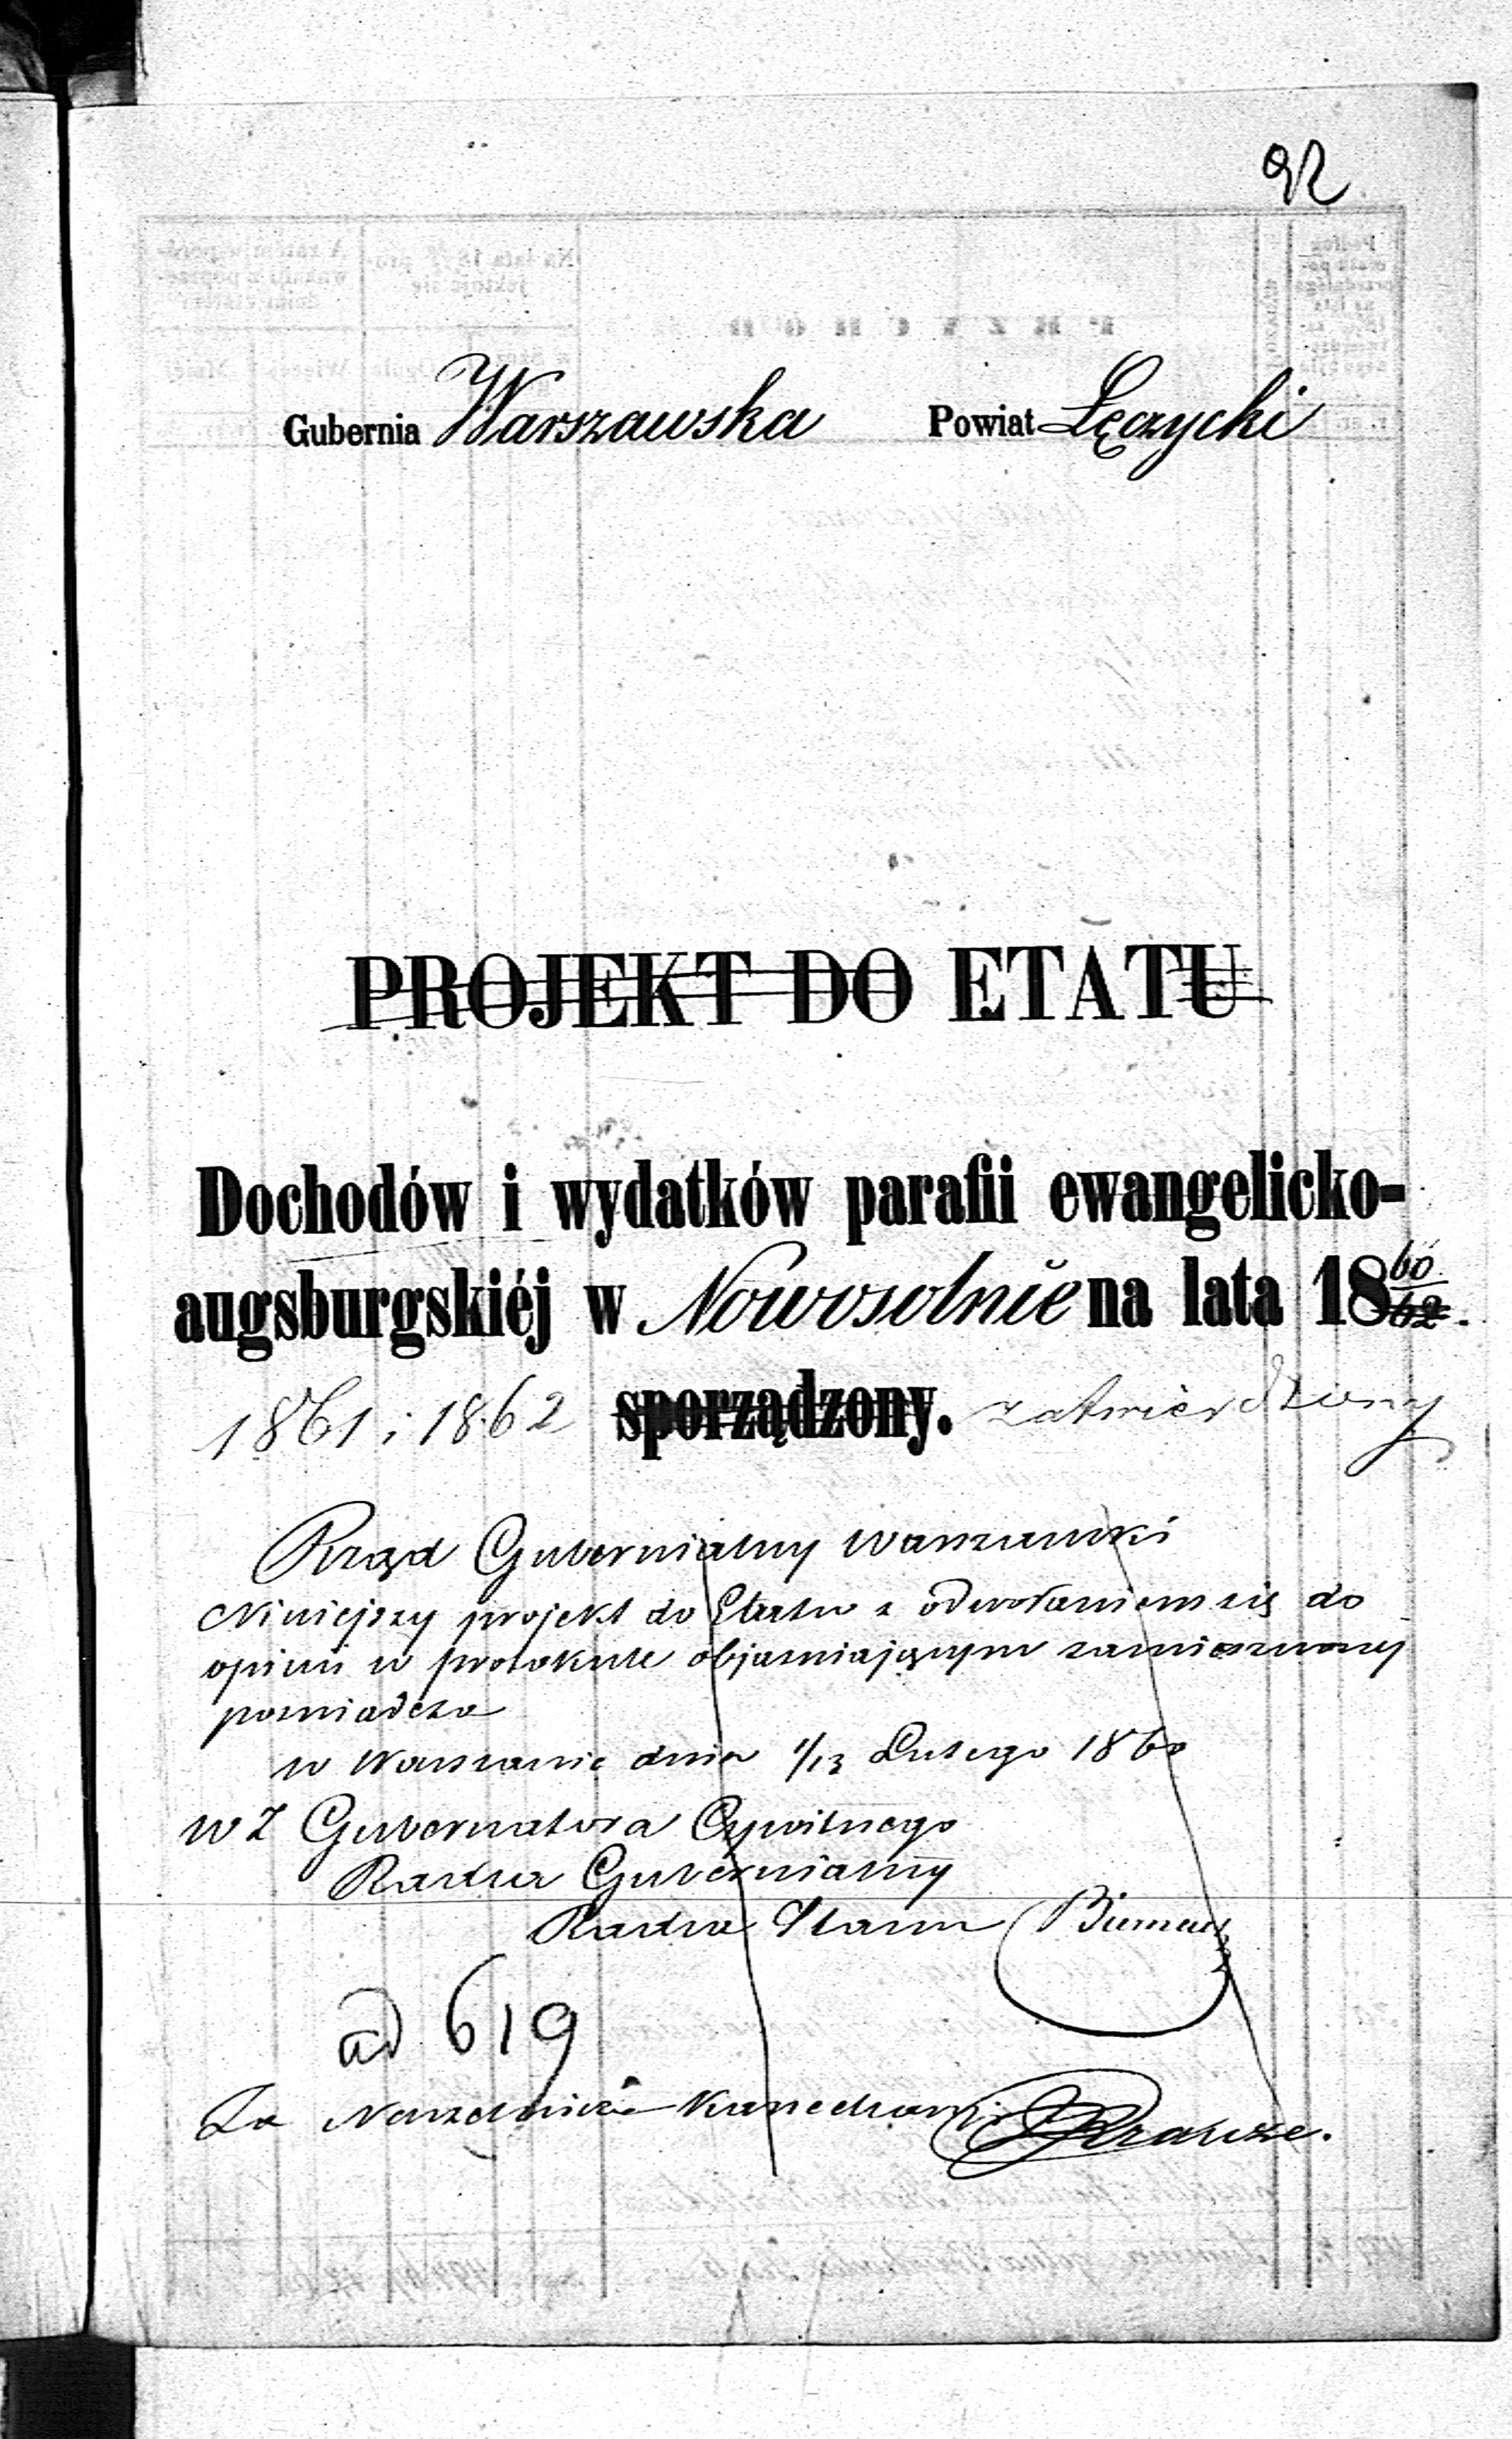 92
Gubernia Warszawska Powiat Łęczycki
PROJEKT DO ETATU
Dochodów i wydatków parafii ewangelicko-
augsburgskiéj w Nowosolnie na lata 18 60/62.
1861 i 1862 sporządzony. zatwierdzony
Rząd Gubernialny Warszawski
Niniejszy projekt do Etatu z odwołaniem się do
opinii w protokule objaśniającym zamieszczonej
poświadcza
w Warszawie dnia 1/13 Lutego 1860
w Z Gubernatora Cywilnego
Radca Gubernialny
Radca Stanu
ad 619
Za Naczelnika Kancellaryi